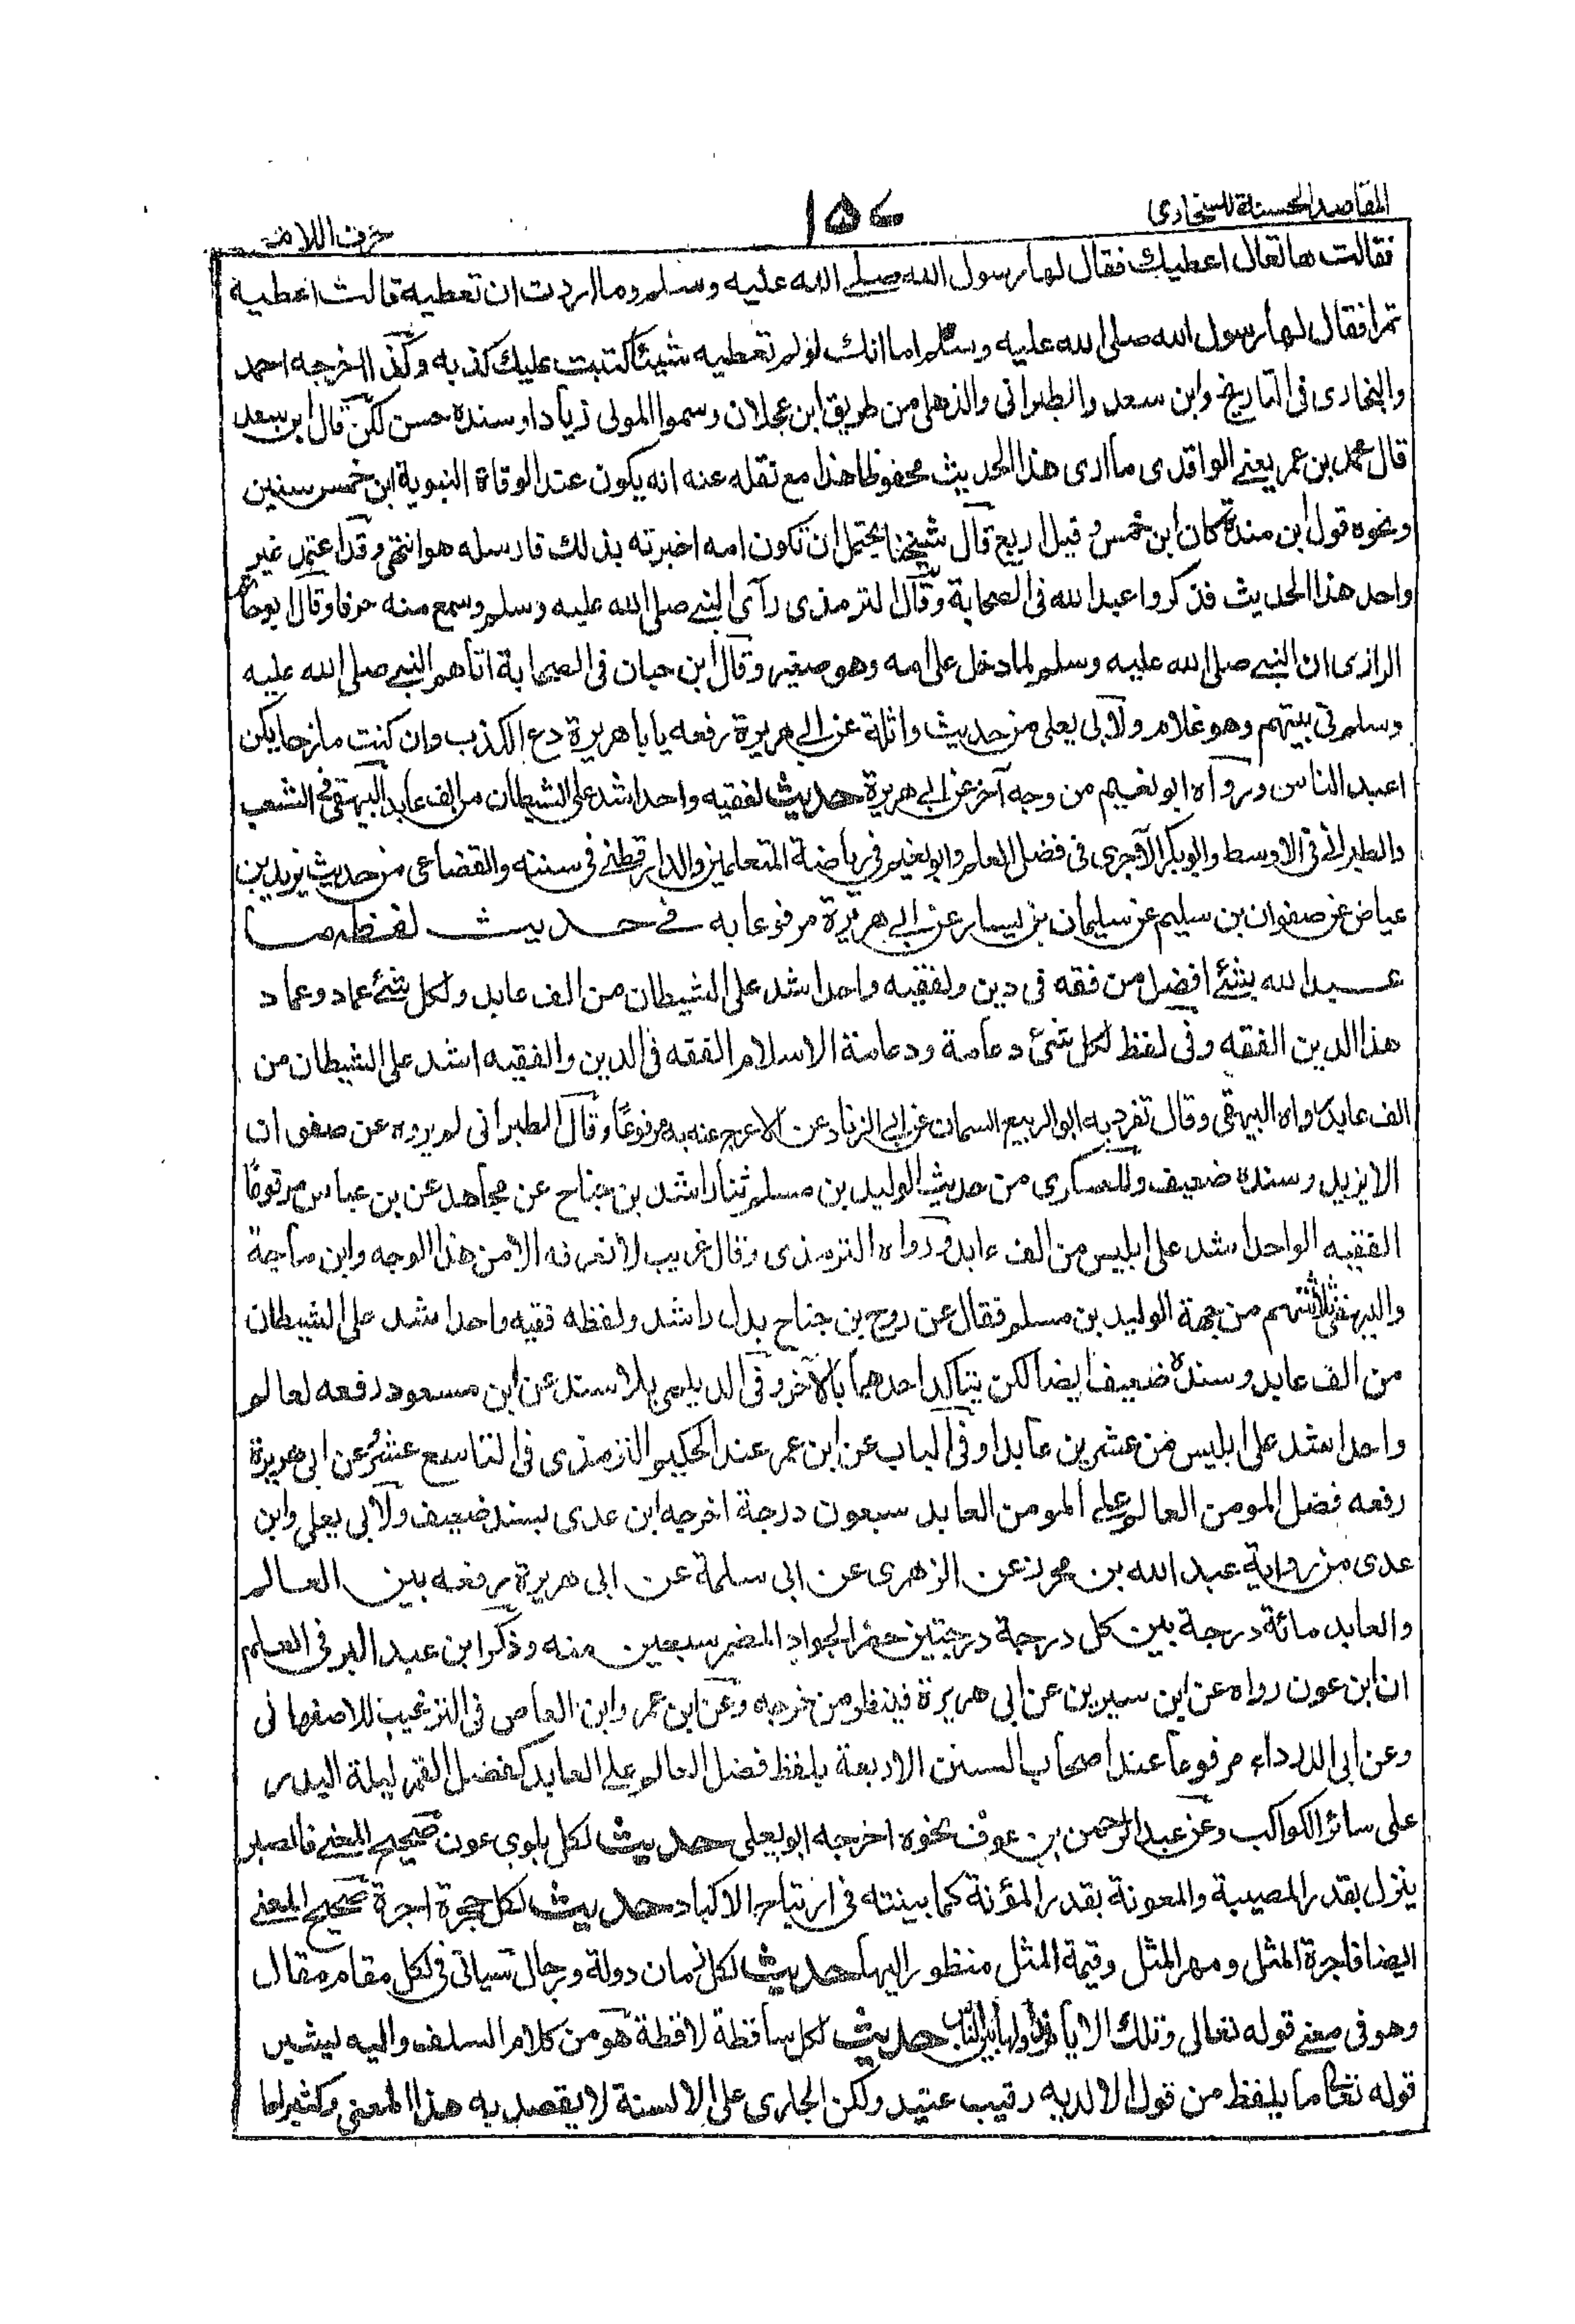 المقاصد الحسنة للسخاوي
١٥٧
حرف اللام
فقالت ها تعال اعطيك فقال لها رسول الله صلے الله عليه وسلم وما اردت ان تعطيه قالت اعطيه
تمرا فقال لها رسول الله صلى الله عليه وسلم اما انك لو لم تعطيه شيئا كتبت عليك كذبه وكذا اخرجه احمد
والبخارى فى التاريخ وابن سعد والطبرانى والذهلى من طريق ابن عجلان وسموا المولى زيادا وسنده حسن لكن قال ابن سعد
قال محمد بن عمر يعنے الواقدى ما ارى هذا الحديث محفوظا هذا مع نقله عنه انه يكون عند الوفاة النبوية ابن خمس سنين
ونحوه قول ابن مندة كان ابن خمس وقيل اربع قال شيخنا يحتمل ان تكون امه اخبرته بذلك فارسله هو انتهى وقد اعتمد غير
واحد هذا الحديث فذكروا عبد الله فى الصحابة وقال الترمذى رآى النبے صلى الله عليه وسلم وسمع منه حرفا وقال ابو حاتم
الرازى ان النبے صلى الله عليه وسلم لما دخل على امه وهو صغير وقال ابن حبان فى الصحابة اتاهم النبے صلى الله عليه
وسلم فى بيتهم وهو غلام ولابى يعلى من حديث واثلة عن ابے هريرة رفعه يا با هريرة دع الكذب وان كنت مازحا يكن
اعبد الناس ورواه ابو نعيم من وجه آخر عن ابے هريرة حديث لفقيه واحد اشد على الشيطان من الف عابد البيهقى فے الشعب
والطبرانى فى الاوسط وابو بكر الآجرى فى فضل العلم وابو نعيم فى رياضة المتعلمين والدارقطنے فى سننه والقضاعى من حديث يزيد بن
عياض عن صفوان بن سليم عن سليمان بن يسار عن ابے هريرة مرفوعا به فے حديث لفظه ما
عبد الله بشئ افضل من فقه فى دين ولفقيه واحد اشد على الشيطان من الف عابد ولكل شئ عماد وعماد
هذا الدين الفقه وفى لفظ لكل شئ دعامة ودعامة الاسلام الفقه فى الدين والفقيه اشد على الشيطان من
الف عابد رواه البيهقى وقال تفرد به ابو الربيع السمان عن ابے الزناد عن الاعرج عنه به مرفوعًا وقال الطبرانى لم يروه عن صفوان
الا يزيد وسنده ضعيف وللعسكرى من حديث الوليد بن مسلم ثنا راشد بن جناح عن مجاهد عن بن عباس مرفوعًا
الفقيه الواحد اشد على ابليس من الف عابد ورواه الترمذى وقال غريب لا نعرفه الا من هذا الوجه وابن ماجة
والبيهقى ثلاثتهم من جهة الوليد بن مسلم فقال عن روح بن جناح بدل راشد ولفظه فقيه واحد اشد على الشيطان
من الف عابد وسنده ضعيف ايضا لكن يتاكد احدهما بالآخر وفى الديلمى بلا سند عن ابن مسعود رفعه لعالم
واحد اشد على ابليس من عشرين عابدا وفى الباب عن ابن عمر عند الحكيم الترمذى فى التاسع عشر وعن ابى هريرة
رفعه فضل المومن العالم علے المومن العابد سبعون درجة اخرجه ابن عدى بسند ضعيف ولابى يعلى وابن
عدى من رواية عبد الله بن محرز عن الزهرى عن ابى سلمة عن ابى هريرة رفعه بين العالم
والعابد مائة درجة بين كل درجة درجتين حضر الجواد المضمر سبعين منه وذكر ابن عبد البر فى العلم
ان ابن عون رواه عن ابن سيرين عن ابى هريرة فينظر من خرجه وعن ابن عمر وابن العاص فى الترغيب للاصفهانى
وعن ابى الدرداء مرفوعا عند اصحاب السنن الاربعة بلفظ فضل العالم علے العابد كفضل القمر ليلة البدر
على سائر الكواكب وعن عبد الرحمن بن عوف نحوه اخرجه ابو يعلى حديث لكل بلوى عون صحيح المعنے فالصبر
ينزل بقدر المصيبة والمعونة بقدر المؤنة كما بينته فى ارتياح الاكباد حديث لكل حجرة اجرة صحيح المعنے
ايضا فاجرة المثل ومهر المثل وقيمة المثل منظور اليها حديث لكل زمان دولة ورجال سياتى فى لكل مقام مقال
وهو فى معنے قوله تعالى وتلك الايام نداولها بين الناس حديث لكل ساقطة لاقطة هو من كلام السلف واليه يشير
قوله تعالى ما يلفظ من قول الا لديه رقيب عتيد ولكن الجارى على الالسنة لا يقصد به هذا المعنى وكثيرا ما